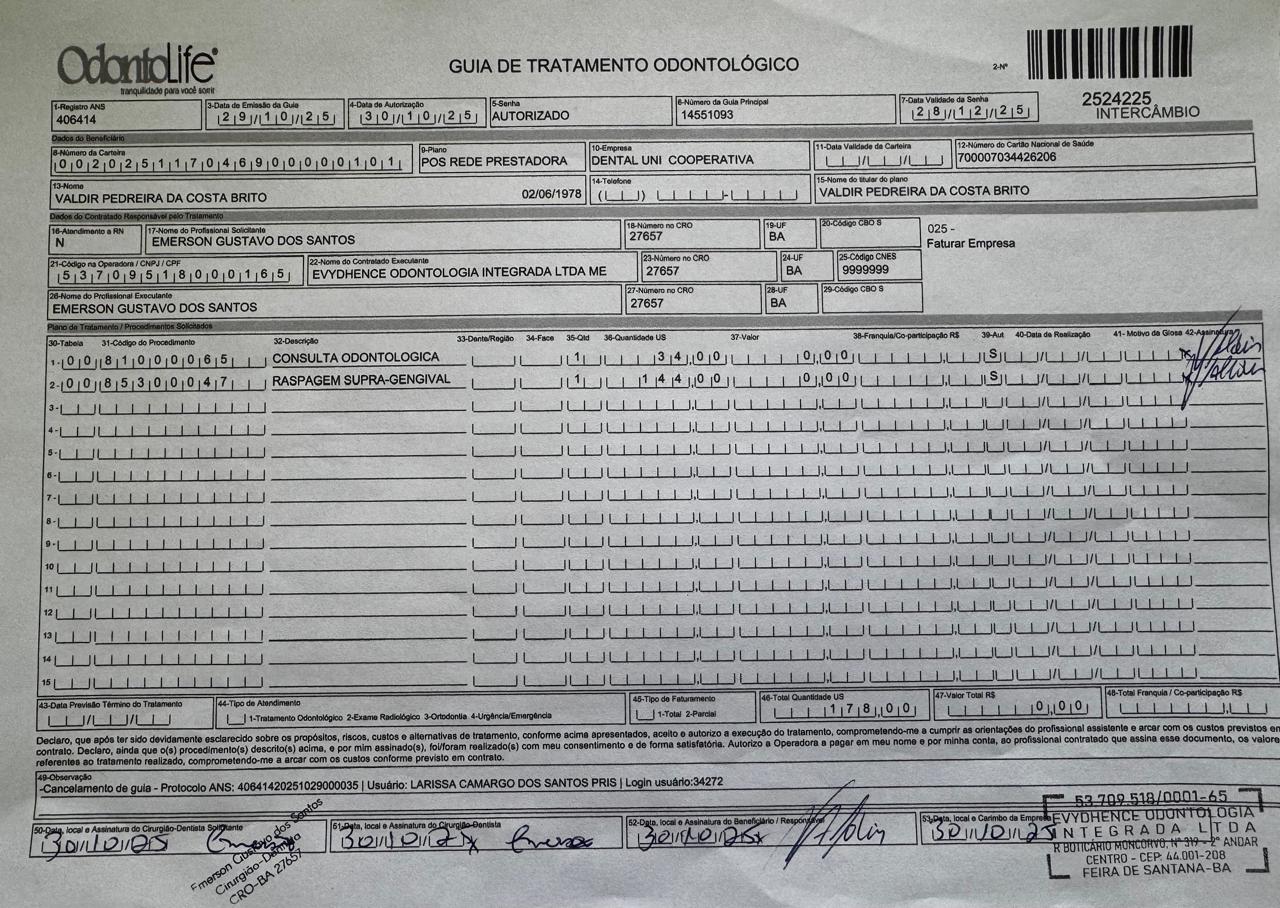 OdontoLife
tranquilidade para você sorrir
GUIA DE TRATAMENTO ODONTOLÓGICO
2-Nº
2524225
INTERCÂMBIO
1-Registro ANS
406414
3-Data de Emissão da Guia
29/10/25
4-Data de Autorização
30/10/25
5-Senha
AUTORIZADO
6-Número da Guia Principal
14551093
7-Data Validade da Senha
28/12/25
Dados do Beneficiário
8-Número da Carteira
002025117046900000101
9-Plano
POS REDE PRESTADORA
10-Empresa
DENTAL UNI COOPERATIVA
11-Data Validade da Carteira
12-Número do Cartão Nacional de Saúde
700007034426206
13-Nome
VALDIR PEDREIRA DA COSTA BRITO 02/06/1978
14-Telefone
15-Nome do titular do plano
VALDIR PEDREIRA DA COSTA BRITO
Dados do Contratado Responsável pelo Tratamento
16-Atendimento a RN
N
17-Nome do Profissional Solicitante
EMERSON GUSTAVO DOS SANTOS
18-Número no CRO
27657
19-UF
BA
20-Código CBO S
025 -
Faturar Empresa
21-Código na Operadora / CNPJ / CPF
53709518000165
22-Nome do Contratado Executante
EVYDHENCE ODONTOLOGIA INTEGRADA LTDA ME
23-Número no CRO
27657
24-UF
BA
25-Código CNES
9999999
26-Nome do Profissional Executante
EMERSON GUSTAVO DOS SANTOS
27-Número no CRO
27657
28-UF
BA
29-Código CBO S
Plano de Tratamento / Procedimentos Solicitados
30-Tabela 31-Código do Procedimento 32-Descrição 33-Dente/Região 34-Face 35-Qtd 36-Quantidade US 37-Valor 38-Franquia/Co-participação R$ 39-Aut 40-Data de Realização 41- Motivo da Glosa 42-Assinatura
1- 00 81000065 CONSULTA ODONTOLOGICA 1 34,00 0,00 S
2- 00 85300047 RASPAGEM SUPRA-GENGIVAL 1 144,00 0,00 S
3-
4-
5-
6-
7-
8-
9-
10
11
12
13
14
15
43-Data Previsão Término do Tratamento
44-Tipo de Atendimento
1-Tratamento Odontológico 2-Exame Radiológico 3-Ortodontia 4-Urgência/Emergência
45-Tipo de Faturamento
1-Total 2-Parcial
46-Total Quantidade US
178,00
47-Valor Total R$
0,00
48-Total Franquia / Co-participação R$
Declaro, que após ter sido devidamente esclarecido sobre os propósitos, riscos, custos e alternativas de tratamento, conforme acima apresentados, aceito e autorizo a execução do tratamento, comprometendo-me a cumprir as orientações do profissional assistente e arcar com os custos previstos em
contrato. Declaro, ainda que o(s) procedimento(s) descrito(s) acima, e por mim assinado(s), foi/foram realizado(s) com meu consentimento e de forma satisfatória. Autorizo a Operadora a pagar em meu nome e por minha conta, ao profissional contratado que assina esse documento, os valores
referentes ao tratamento realizado, comprometendo-me a arcar com os custos conforme previsto em contrato.
49-Observação
-Cancelamento de guia - Protocolo ANS: 40641420251029000035 | Usuário: LARISSA CAMARGO DOS SANTOS PRIS | Login usuário:34272
50-Data, local e Assinatura do Cirurgião-Dentista Solicitante
30/10/25
51-Data, local e Assinatura do Cirurgião-Dentista
30/10/25
52-Data, local e Assinatura do Beneficiário / Responsável
30/10/25
53-Data, local e Carimbo da Empresa
30/10/25
Emerson Gustavo dos Santos
Cirurgião-Dentista
CRO-BA 27657
53.709.518/0001-65
EVYDHENCE ODONTOLOGIA
INTEGRADA LTDA
R BOTICÁRIO MONCORVO, Nº 319 - 2º ANDAR
CENTRO - CEP: 44.001-208
FEIRA DE SANTANA-BA